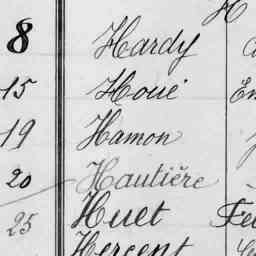 H
8 Hardy
15 Houé
19 Hamon
20 Hautière
25 Huet
Hercent